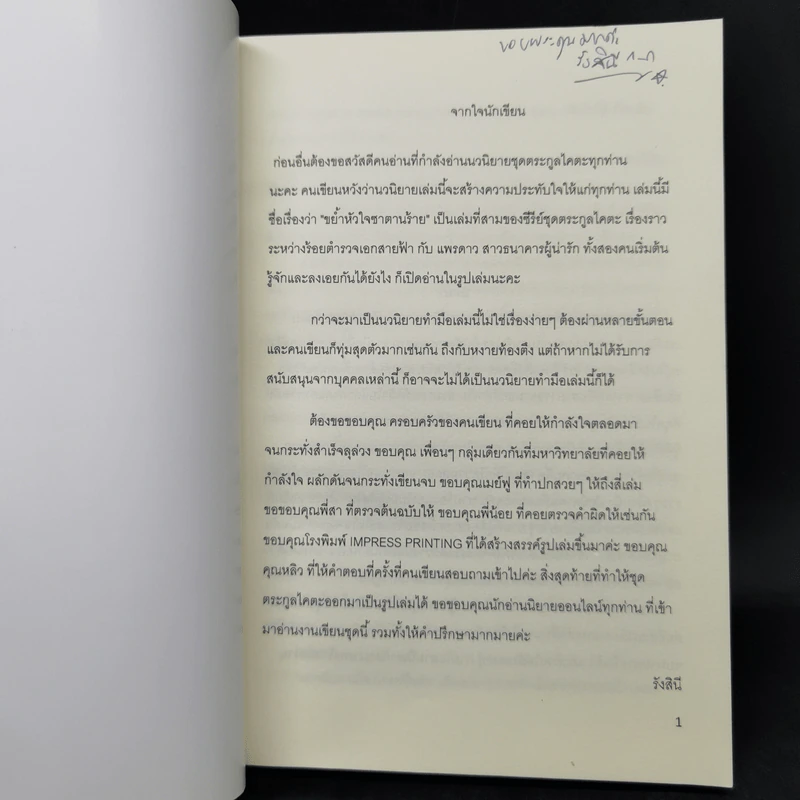 ขอบพระคุณมากค่ะ
รังสินี
จากใจนักเขียน
ก่อนอื่นต้องขอสวัสดีคนอ่านที่กำลังอ่านนวนิยายชุดตระกูลไคตะทุกท่าน
นะคะ คนเขียนหวังว่านวนิยายเล่มนี้จะสร้างความประทับใจให้แก่ทุกท่าน เล่มนี้มี
ชื่อเรื่องว่า "ขย้ำหัวใจซาตานร้าย" เป็นเล่มที่สามของซีรีย์ชุดตระกูลไคตะ เรื่องราว
ระหว่างร้อยตำรวจเอกสายฟ้า กับ แพรดาว สาวธนาคารผู้น่ารัก ทั้งสองคนเริ่มต้น
รู้จักและลงเอยกันได้ยังไง ก็เปิดอ่านในรูปเล่มนะคะ
กว่าจะมาเป็นนวนิยายทำมือเล่มนี้ไม่ใช่เรื่องง่ายๆ ต้องผ่านหลายขั้นตอน
และคนเขียนก็ทุ่มสุดตัวมากเช่นกัน ถึงกับหงายท้องตึง แต่ถ้าหากไม่ได้รับการ
สนับสนุนจากบุคคลเหล่านี้ ก็อาจจะไม่ได้เป็นนวนิยายทำมือเล่มนี้ก็ได้
ต้องขอขอบคุณ ครอบครัวของคนเขียน ที่คอยให้กำลังใจตลอดมา
จนกระทั่งสำเร็จลุล่วง ขอบคุณ เพื่อนๆ กลุ่มเดียวกันที่มหาวิทยาลัยที่คอยให้
กำลังใจ ผลักดันจนกระทั่งเขียนจบ ขอบคุณเมย์ฟู ที่ทำปกสวยๆ ให้ถึงสี่เล่ม
ขอขอบคุณพี่สา ที่ตรวจต้นฉบับให้ ขอบคุณพี่น้อย ที่คอยตรวจคำผิดให้เช่นกัน
ขอบคุณโรงพิมพ์ IMPRESS PRINTING ที่ได้สร้างสรรค์รูปเล่มขึ้นมาค่ะ ขอบคุณ
คุณหลิว ที่ให้คำตอบที่ครั้งที่คนเขียนสอบถามเข้าไปค่ะ สิ่งสุดท้ายที่ทำให้ชุด
ตระกูลไคตะออกมาเป็นรูปเล่มได้ ขอขอบคุณนักอ่านนิยายออนไลน์ทุกท่าน ที่เข้า
มาอ่านงานเขียนชุดนี้ รวมทั้งให้คำปรึกษามากมายค่ะ
รังสินี
1